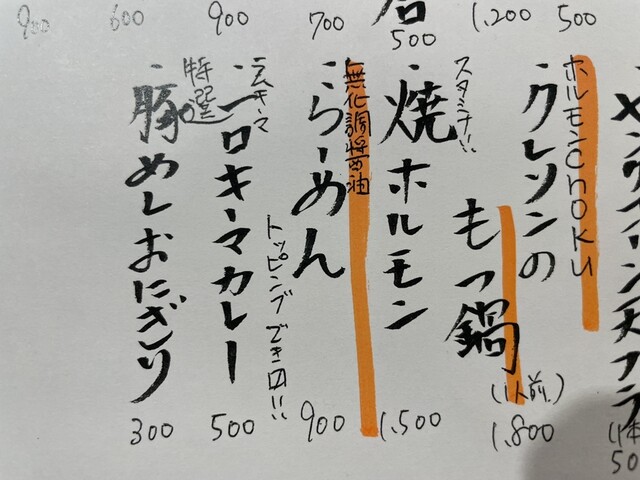 1,200
500
500
700
900
600
900
ホルモンchoku
・クレソンの
もつ鍋
(1人前)
1,800
スタミナ!!
・焼ホルモン
1,500
無化調醤油
・らーめん
900
トッピングでき〼!!
特選
キーマカレー
500
・豚めしおにぎり
300